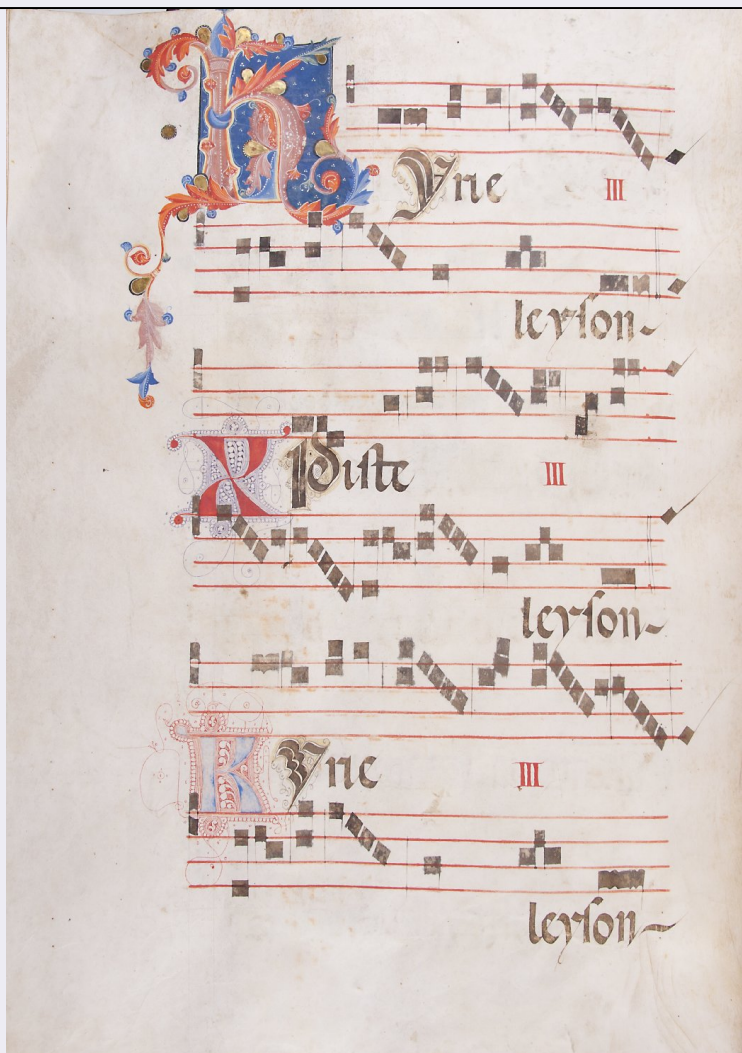 Kyrie III
leyson
Xpiste III
leyson
Kyrie III
leyson